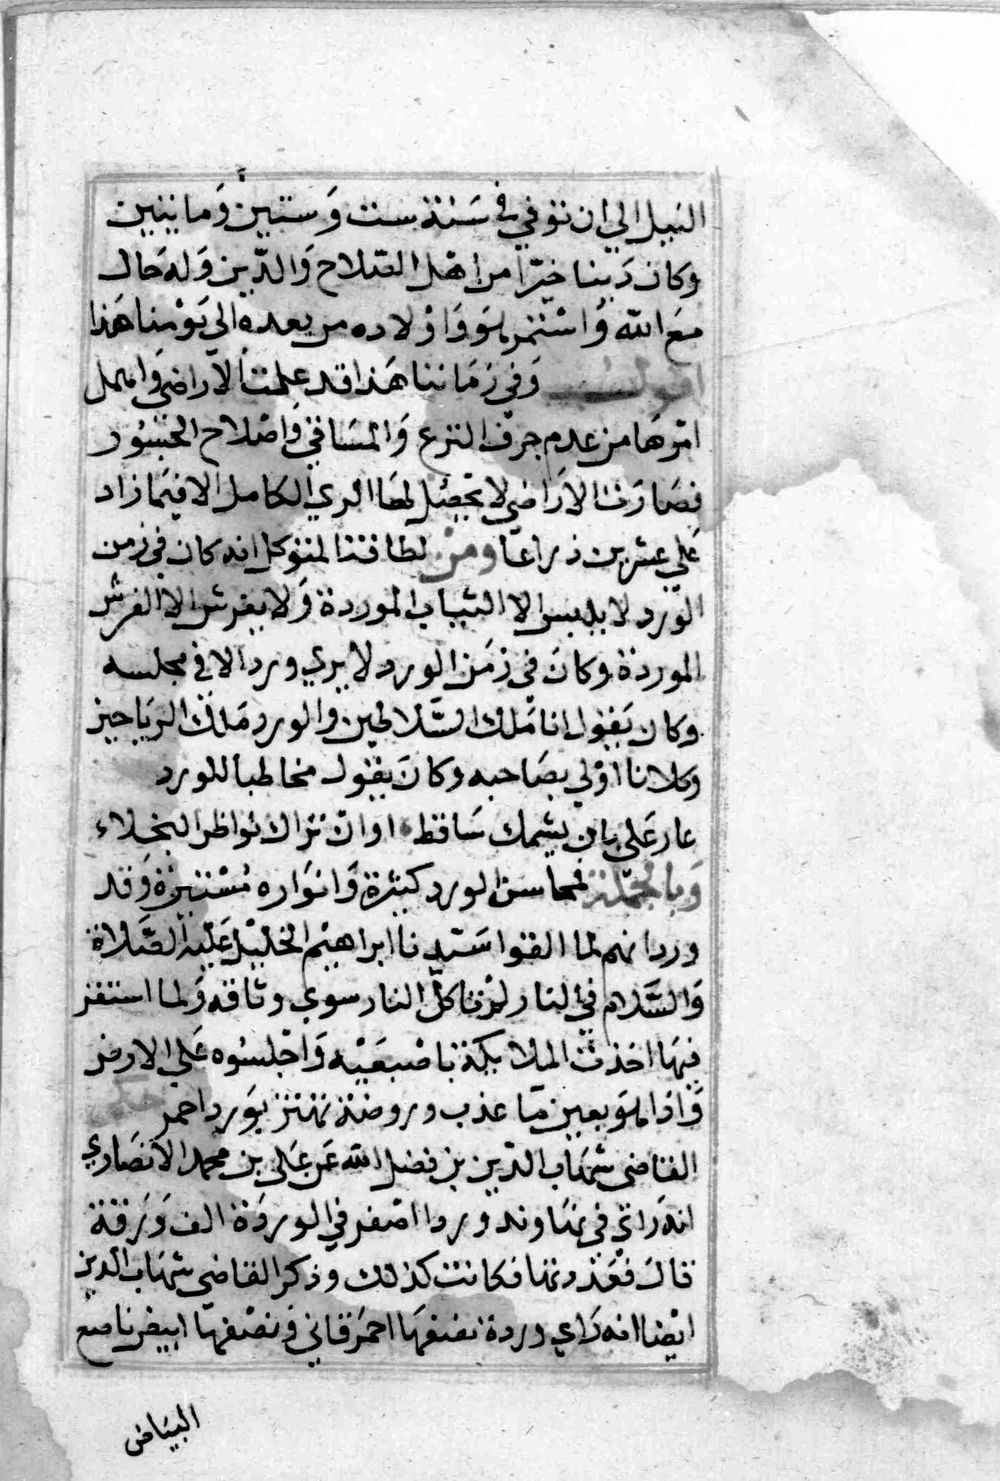 النيل الي ان توفي في سَنة ست وَستين وَمايتين
وكان دَينا خيّرا من اهل الصّلاح وَالدّين وَله حَال
مَع الله وَاستمر بنوه وَاوْلاده من بعده الي يَوْمنا هَذا
اقول وَفي زمَاننا هَذا قد علت الاراضي وَاهمل
امْرهَا من عدم جرف الترع وَالمسَاقي وَاصْلاح الجسُور
فصَارت الاراضي لا يحصُل لهَا الري الكامل الا فيمَا زاد
عَلي عشرين ذراعًا ومن لطافة المتوكل انه كان في زمن
الورد لا يلبس الا الثياب الموردة وَلا يفرش الا الفرش
الموردة وكانَ في زمَن الورد لا يري ورد الا في مجلسه
وكان يَقول انا مَلك السَّلاطين والورد مَلك الريَاحين
وكلانا اوْلي بصَاحبه وكانَ يقول مخاطبا للورد
عار عَلي بان يشمك سَاقط او ان تراك نواظر البخلاء
وَبالجُمْلة فمحاسن الورد كثيرة وَانوَاره مُسْتنيرة وَقد
ورد انهم لما القوا سَيدنا ابراهيْم الخليْل عَليْه الصَّلاة
وَالسَّلام في النار لم تاكل النار سوي وثاقه وَلما استقر
فيهَا اخذت الملايكة باضْبعَيْه وَاجْلسُوه عَلي الارض
وَاذا هوَ بعين مَا عذب وروضة تهتز بوَرد احمر حكي
القاضي شهَاب الدّين بن فضل الله عَن عَلي بن محمد الانصَاري
انه رَاي في نهَاوند وردا اصْفر في الورْدة الف وَرَقة
قالَ فعَددتهَا فكانت كذلك وذكر القاضي شهَاب الدين
ايْضا انه رَاي وردة نصْفهَا احمَر قاني وَنصْفهَا ابيض ناصع
البيَاض